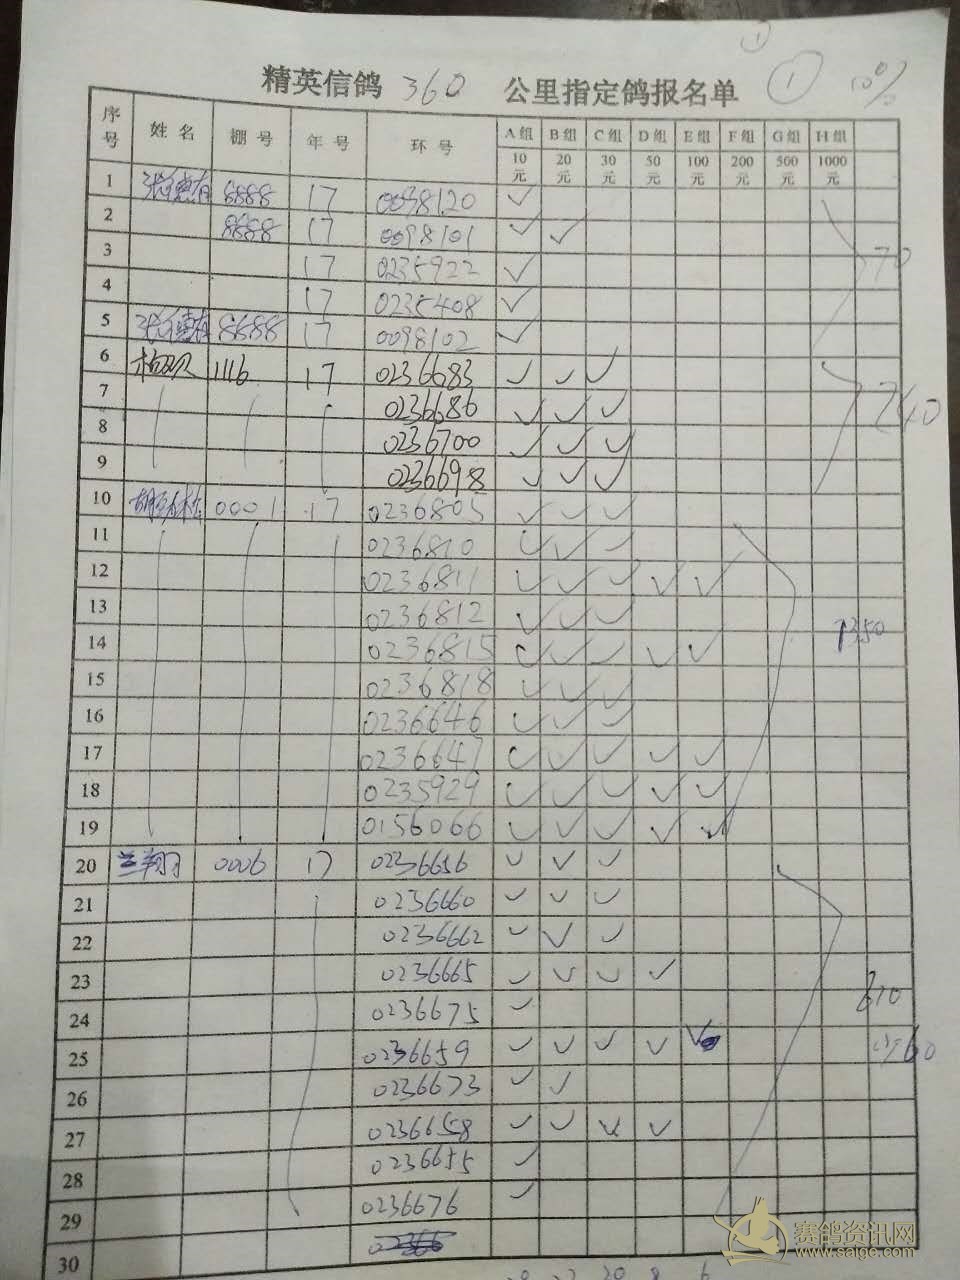 ①
精英信鸽 360 公里指定鸽报名单 ① 10%
序号 姓名 棚号 年号 环号 A组 B组 C组 D组 E组 F组 G组 H组
10元 20元 30元 50元 100元 200元 500元 1000元
1 8888 17 0098120 ✓
2 8888 17 0098101 ✓ ✓
70
3 17 0235922 ✓
4 17 0235408 ✓
5 8688 17 0098102 ✓
6 1116 17 0236683 ✓ ✓ ✓
240
7 0236686 ✓ ✓ ✓
8 0236700 ✓ ✓ ✓
9 0236698 ✓ ✓ ✓
10 0001 17 0236805 ✓ ✓ ✓
11 0236810 ✓ ✓ ✓
12 0236811 ✓ ✓ ✓ ✓ ✓
13 0236812 ✓ ✓ ✓
1350
14 0236815 ✓ ✓ ✓ ✓ ✓
15 0236818 ✓ ✓ ✓
16 0236646 ✓ ✓ ✓
17 0236647 ✓ ✓ ✓ ✓ ✓
18 0235929 ✓ ✓ ✓ ✓ ✓
19 0156066 ✓ ✓ ✓ ✓ ✓
20 兰翔 0006 17 0236656 ✓ ✓ ✓
21 0236660 ✓ ✓ ✓
22 0236662 ✓ ✓ ✓
23 0236665 ✓ ✓ ✓ ✓
24 0236675 ✓
25 0236659 ✓ ✓ ✓ ✓
26 0236673 ✓ ✓
27 0236658 ✓ ✓ ✓ ✓
28 0236655 ✓
29 0236676 ✓
30
赛鸽资讯网
www.saige.com